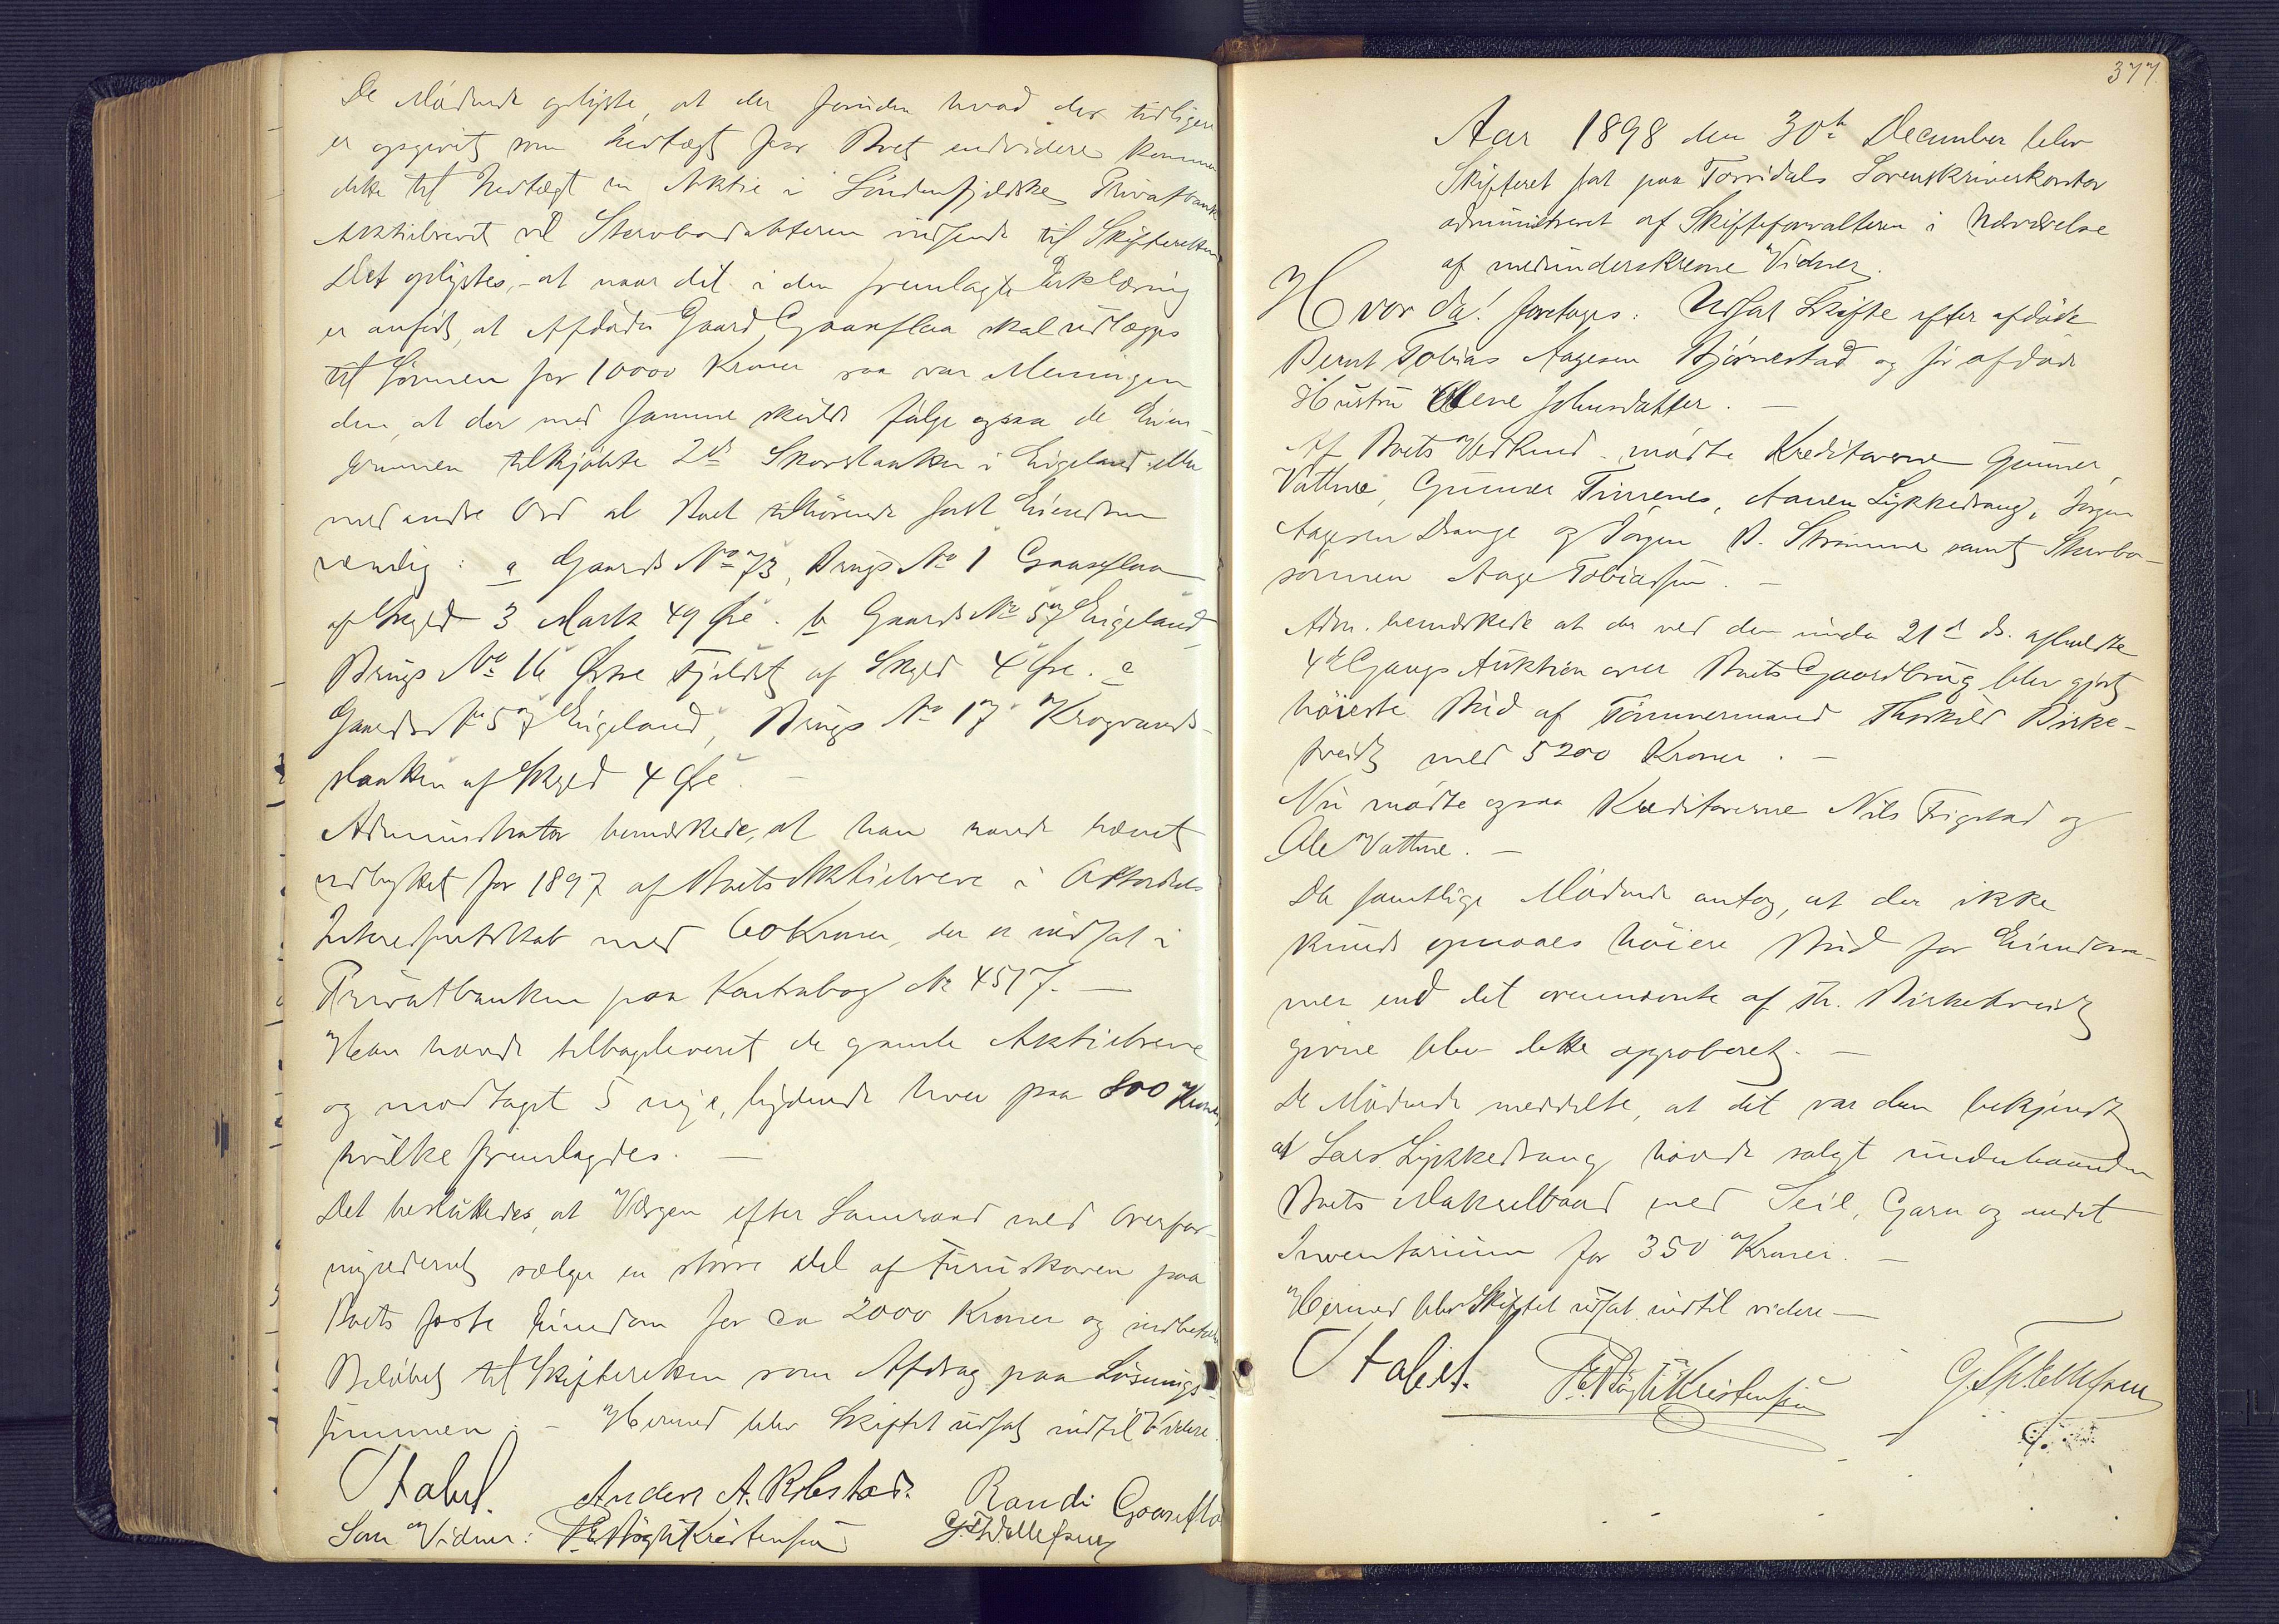 De Mødende oplyste, at der foruden hvad der tidligere
er opgivet som Indtægt for Boet endvidere kommer
dette til Indtægt en Aktie i Søndenfjeldske Privatbank
Aktiebrevet vil Stervbodatteren indsende til Skifteretten
Det oplystes, at naar det i den fremlagte Erklæring
er anført, at Afdødes Gaard Gaaseflaa skal udlægges
til Sønnen for 10000 Kroner saa var Meningen
den, at der med samme skulde følge ogsaa de Eien-
dommen tilkjøbte 2de Skovstykker i Eigeland eller
med andre Ord al Boet tilhørende fast Eiendom
nemlig: a Gaards No 73, Brugs No 1 Gaaseflaa
af Skyld 3 Mark 49 Øre. b Gaards No 57 Eigeland
Brugs No 16 Østre Fjeldet af Skyld 4 Øre. c
Gaards No 57 Eigeland, Brugs No 17 Krogvands-
slaatten af Skyld 4 Øre. —
Administrator bemærkede, at han havde hævet
udbyttet for 1897 af Boets Aktiebreve i
Interessentskab med 60 Kroner, der er indsat i
Privatbanken paa Kontrabog No 4517. —
Han havde tilbageleveret de gamle Aktiebreve
og modtaget 5 nye, lydende hver paa 800 Kroner,
hvilke fremlagdes. —
Det besluttedes, at Værgen efter Samraad med Overfor-
mynderiet sælger en større Del af Furuskoven paa
Boets faste Eiendom for ca 2000 Kroner og indbetaler
Beløbet til Skifteretten som Afdrag paa Løsnings-
summen. — Hermed blev Skiftet udsat indtil Videre.
Stabel. Anders A. Robstad. Randi Gaaseflaa
Som Vidner: Kristensen
377
Aar 1898 den 30te December blev
Skifteret sat paa Torridals Sorenskriverkontor
administreret af Skifteforvalteren i Nærværelse
af medunderskrevne Vidner.
Hvor da! foretoges: Udsat Skifte efter afdøde
Bernt Tobias Aagesen Bjørnestad og før afdøde
Hustru Olene Johnsdatter. —
Af Boets Vedkend. mødte Kreditorerne Gunner
Vattne, Gunner Timenes, Aanen Lykkedrang, Jørgen
Aagesen Drange og Jørgen B. Strømme samt Stervbo-
sønnen Aage Tobiassen. —
Adm. bemærkede at der ved den under 21de ds. afholdte
4de Gangs Auktion over Boets Gaardbrug blev gjort
høieste Bud af Tømmermand Thorkild Birke-
tveit med 5200 Kroner. —
Nu mødte ogsaa Kreditorerne Nils Frigstad og
Ole Vattne. —
Da samtlige Mødende antog, at der ikke
kunde opnaaes høiere Bud for Eiendom-
men end det ovennævnte af Th. Birketveit
givne blev dette approberet. —
De Mødende meddelte, at det var dem bekjendt
at Lars Lykkedrang havde solgt underhaanden
Boets Makrelbaad med Seil, Garn og andet
Inventarium for 350 Kroner. —
Hermed blev Skiftet udsat indtil videre —
Stabel. Kristensen